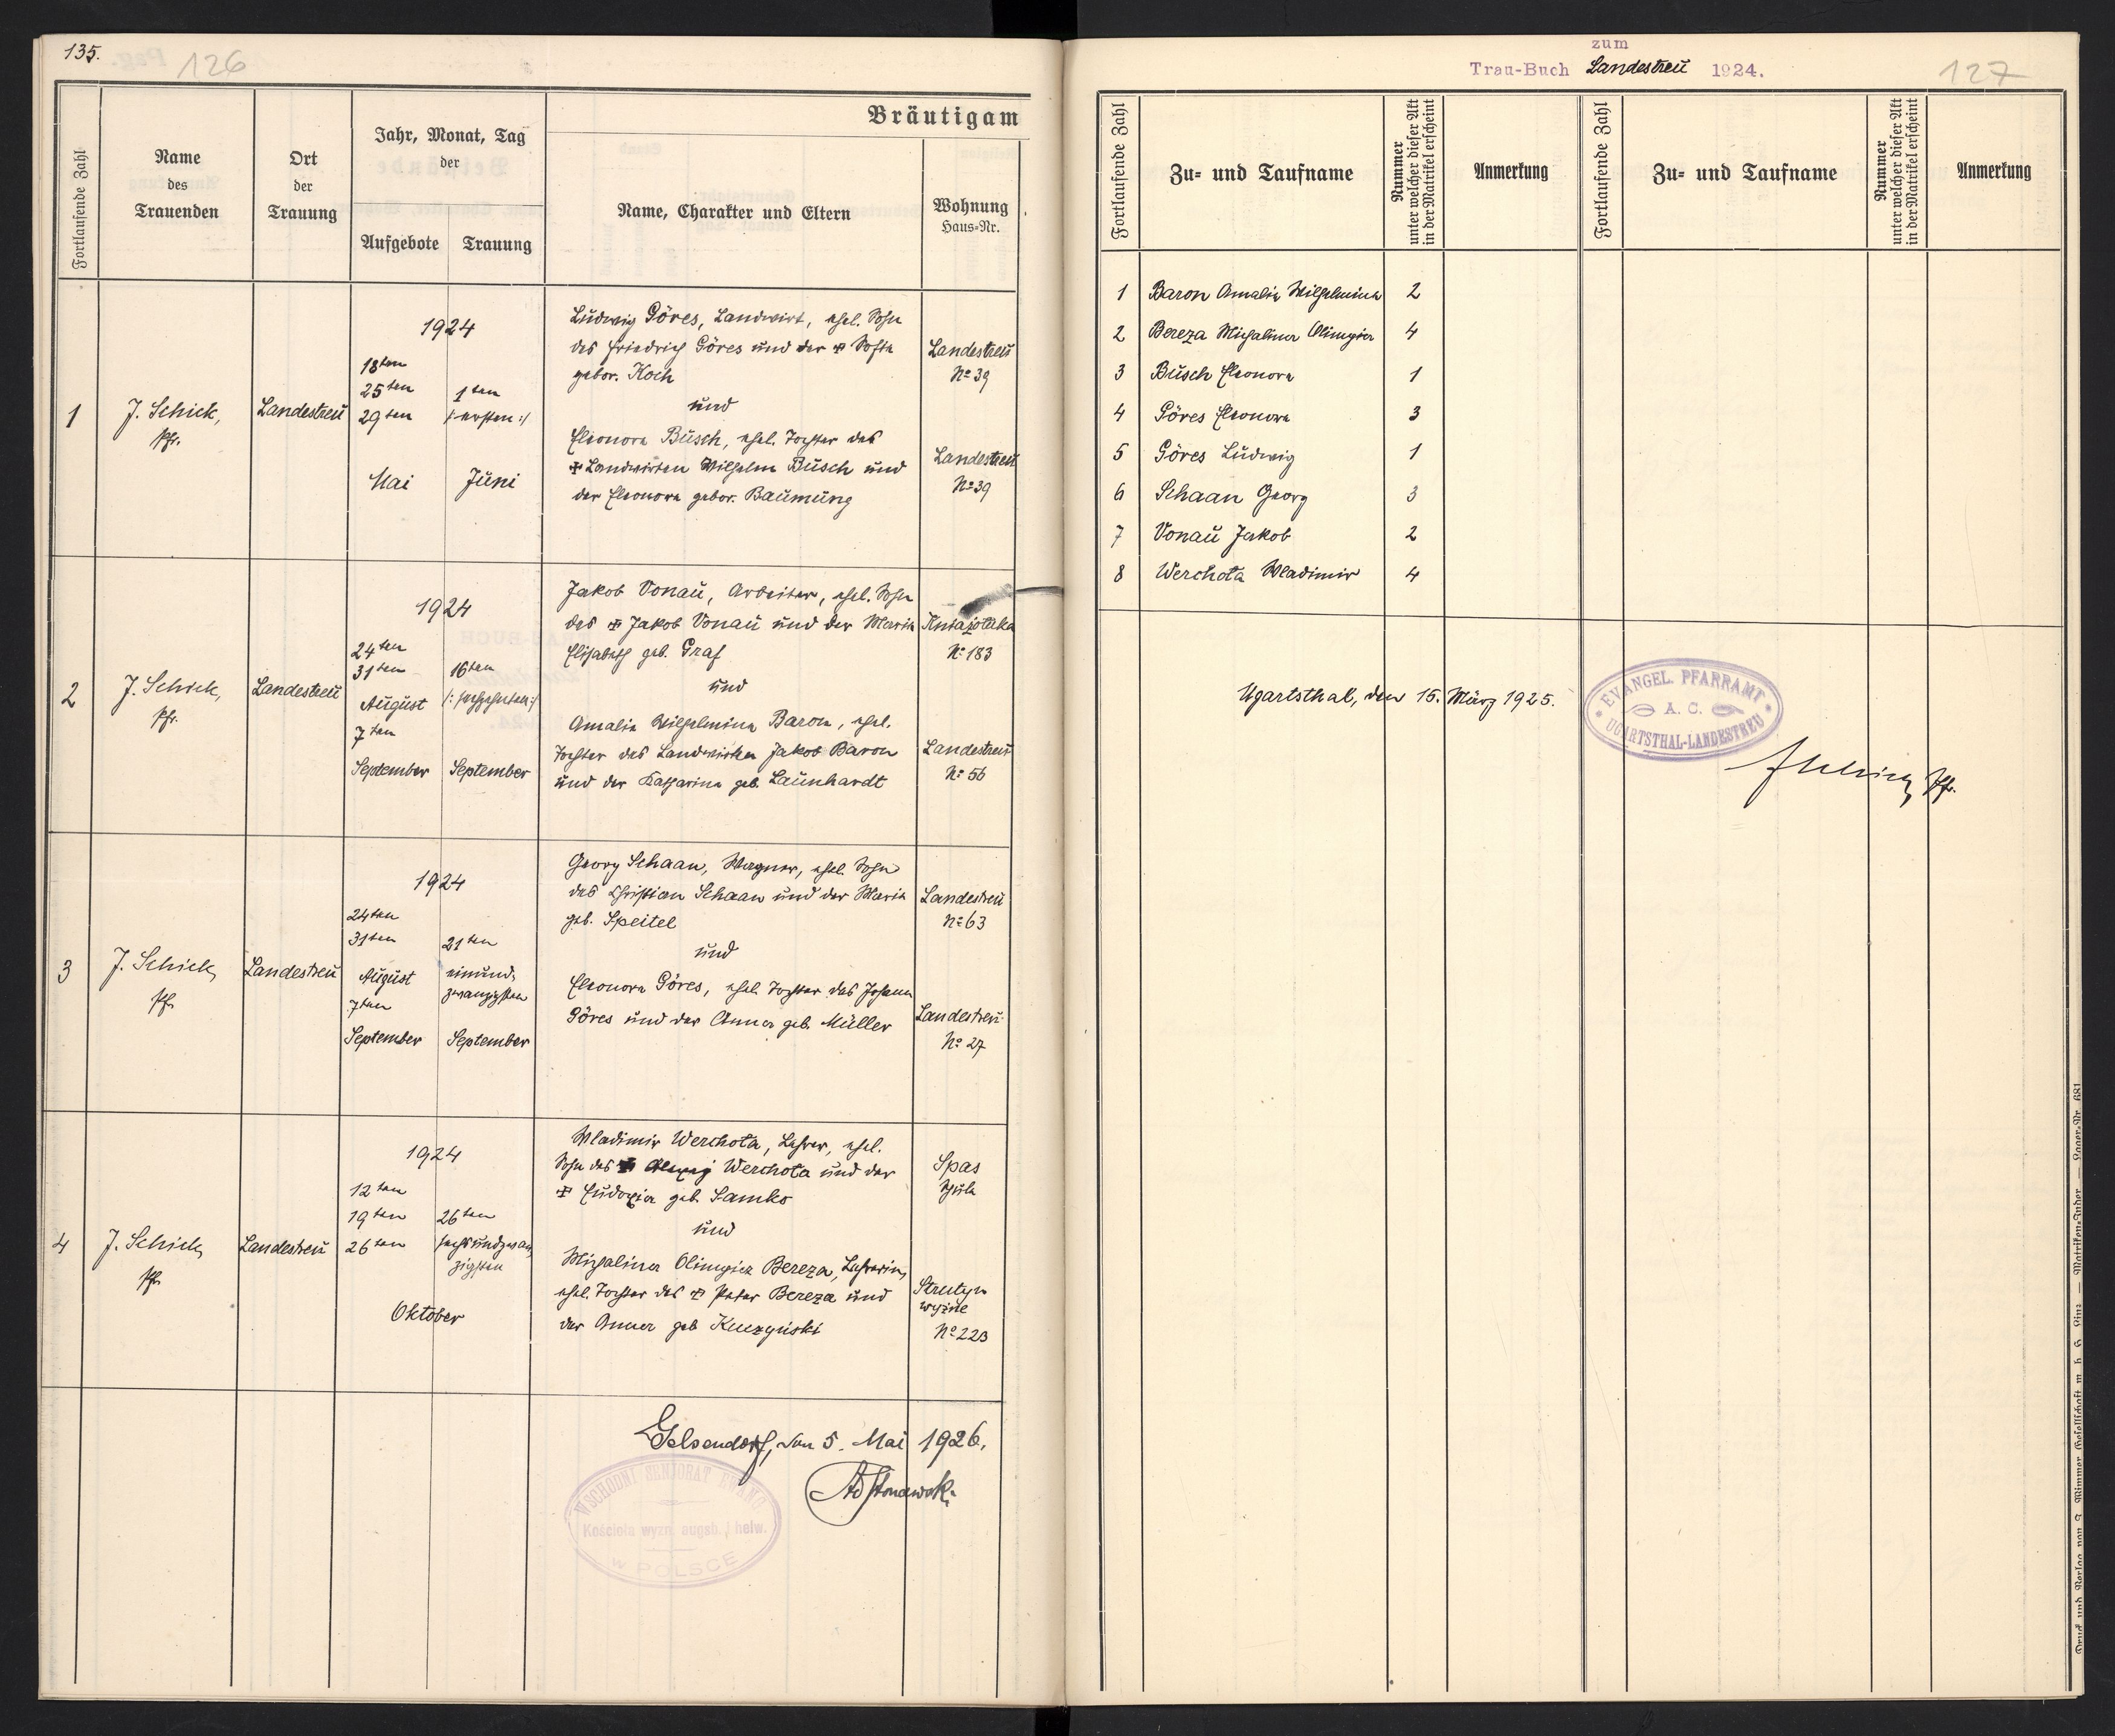 135.
126
Bräutigam
Fortlaufende Zahl
Name
des
Trauenden
Ort
der
Trauung
Jahr, Monat, Tag
der
Aufgebote
Trauung
Name, Charakter und Eltern
Wohnung
Haus-Nr.
1
J. Schick,
Pfr.
Landestreu
1924
18ten
25ten
29ten
Mai
1ten
/:ersten:/
Juni
Ludwig Göres, Landwirt, ehel. Sohn
des Friedrich Göres und der ✠ Sofie
gebor. Koch
und
Eleonora Busch, ehel. Tochter des
✠ Landwirten Wilhelm Busch und
der Eleonora gebor. Baumung
Landestreu
No 39
Landestreu
No 39
2
J. Schick,
Pfr.
Landestreu
1924
24ten
31ten
August
7ten
September
16ten
/:sechzehnten:/
September
Jakob Vonau, Arbeiter, ehel. Sohn
des ✠ Jakob Vonau und der Maria
Elisabeth geb. Graf
und
Amalie Wilhelmina Baron, ehel.
Tochter des Landwirten Jakob Baron
und der Katharina geb. Launhardt
No 183
Landestreu
No 56
3
J. Schick,
Pfr.
Landestreu
1924
24ten
31ten
August
7ten
September
21ten
einund-
zwanzigsten
September
Georg Schaan, Wagner, ehel. Sohn
des Christian Schaan und der Maria
geb. Speitel
und
Eleonora Göres, ehel. Tochter des Johann
Göres und der Anna geb. Müller
Landestreu
No 63
Landestreu
No 27
4
J. Schick,
Pfr.
Landestreu
1924
12ten
19ten
26ten
26ten
sechsundzwan
zigsten
Oktober
Wladimir Werchota, Lehrer, ehel.
Sohn des ✠ Alexej Werchota und der
✠ Eudoxia geb. Sanko
und
Michalina Olimpia Bereza, Lehrerin,
ehel. Tochter des ✠ Peter Bereza und
der Anna geb. Kuczyński
Spas
Schule
Strutyn
wyżne
No 223
Gelsendorf, den 5. Mai 1926.
WSCHODNI SENJORAT EWANG
Kościoła wyzn. augsb. i helw.
W POLSCE
zum
Trau-Buch Landestreu 1924.
127
Fortlaufende Zahl
Zu- und Taufname
Nummer
unter welcher dieser Akt
in der Matrikel erscheint
Anmerkung
Fortlaufende Zahl
Zu- und Taufname
Nummer
unter welcher dieser Akt
in der Matrikel erscheint
Anmerkung
1 Baron Amalie Wilhelmina 2
2 Bereza Michalina Olimpia 4
3 Busch Eleonora 1
4 Göres Eleonora 3
5 Göres Ludwig 1
6 Schaan Georg 3
7 Vonau Jakob 2
8 Werchota Wladimir 4
Ugartsthal, den 15. März 1925.
EVANGEL. PFARRAMT
A. C.
UGARTSTHAL-LANDESTREU
JSchick, Pfr.